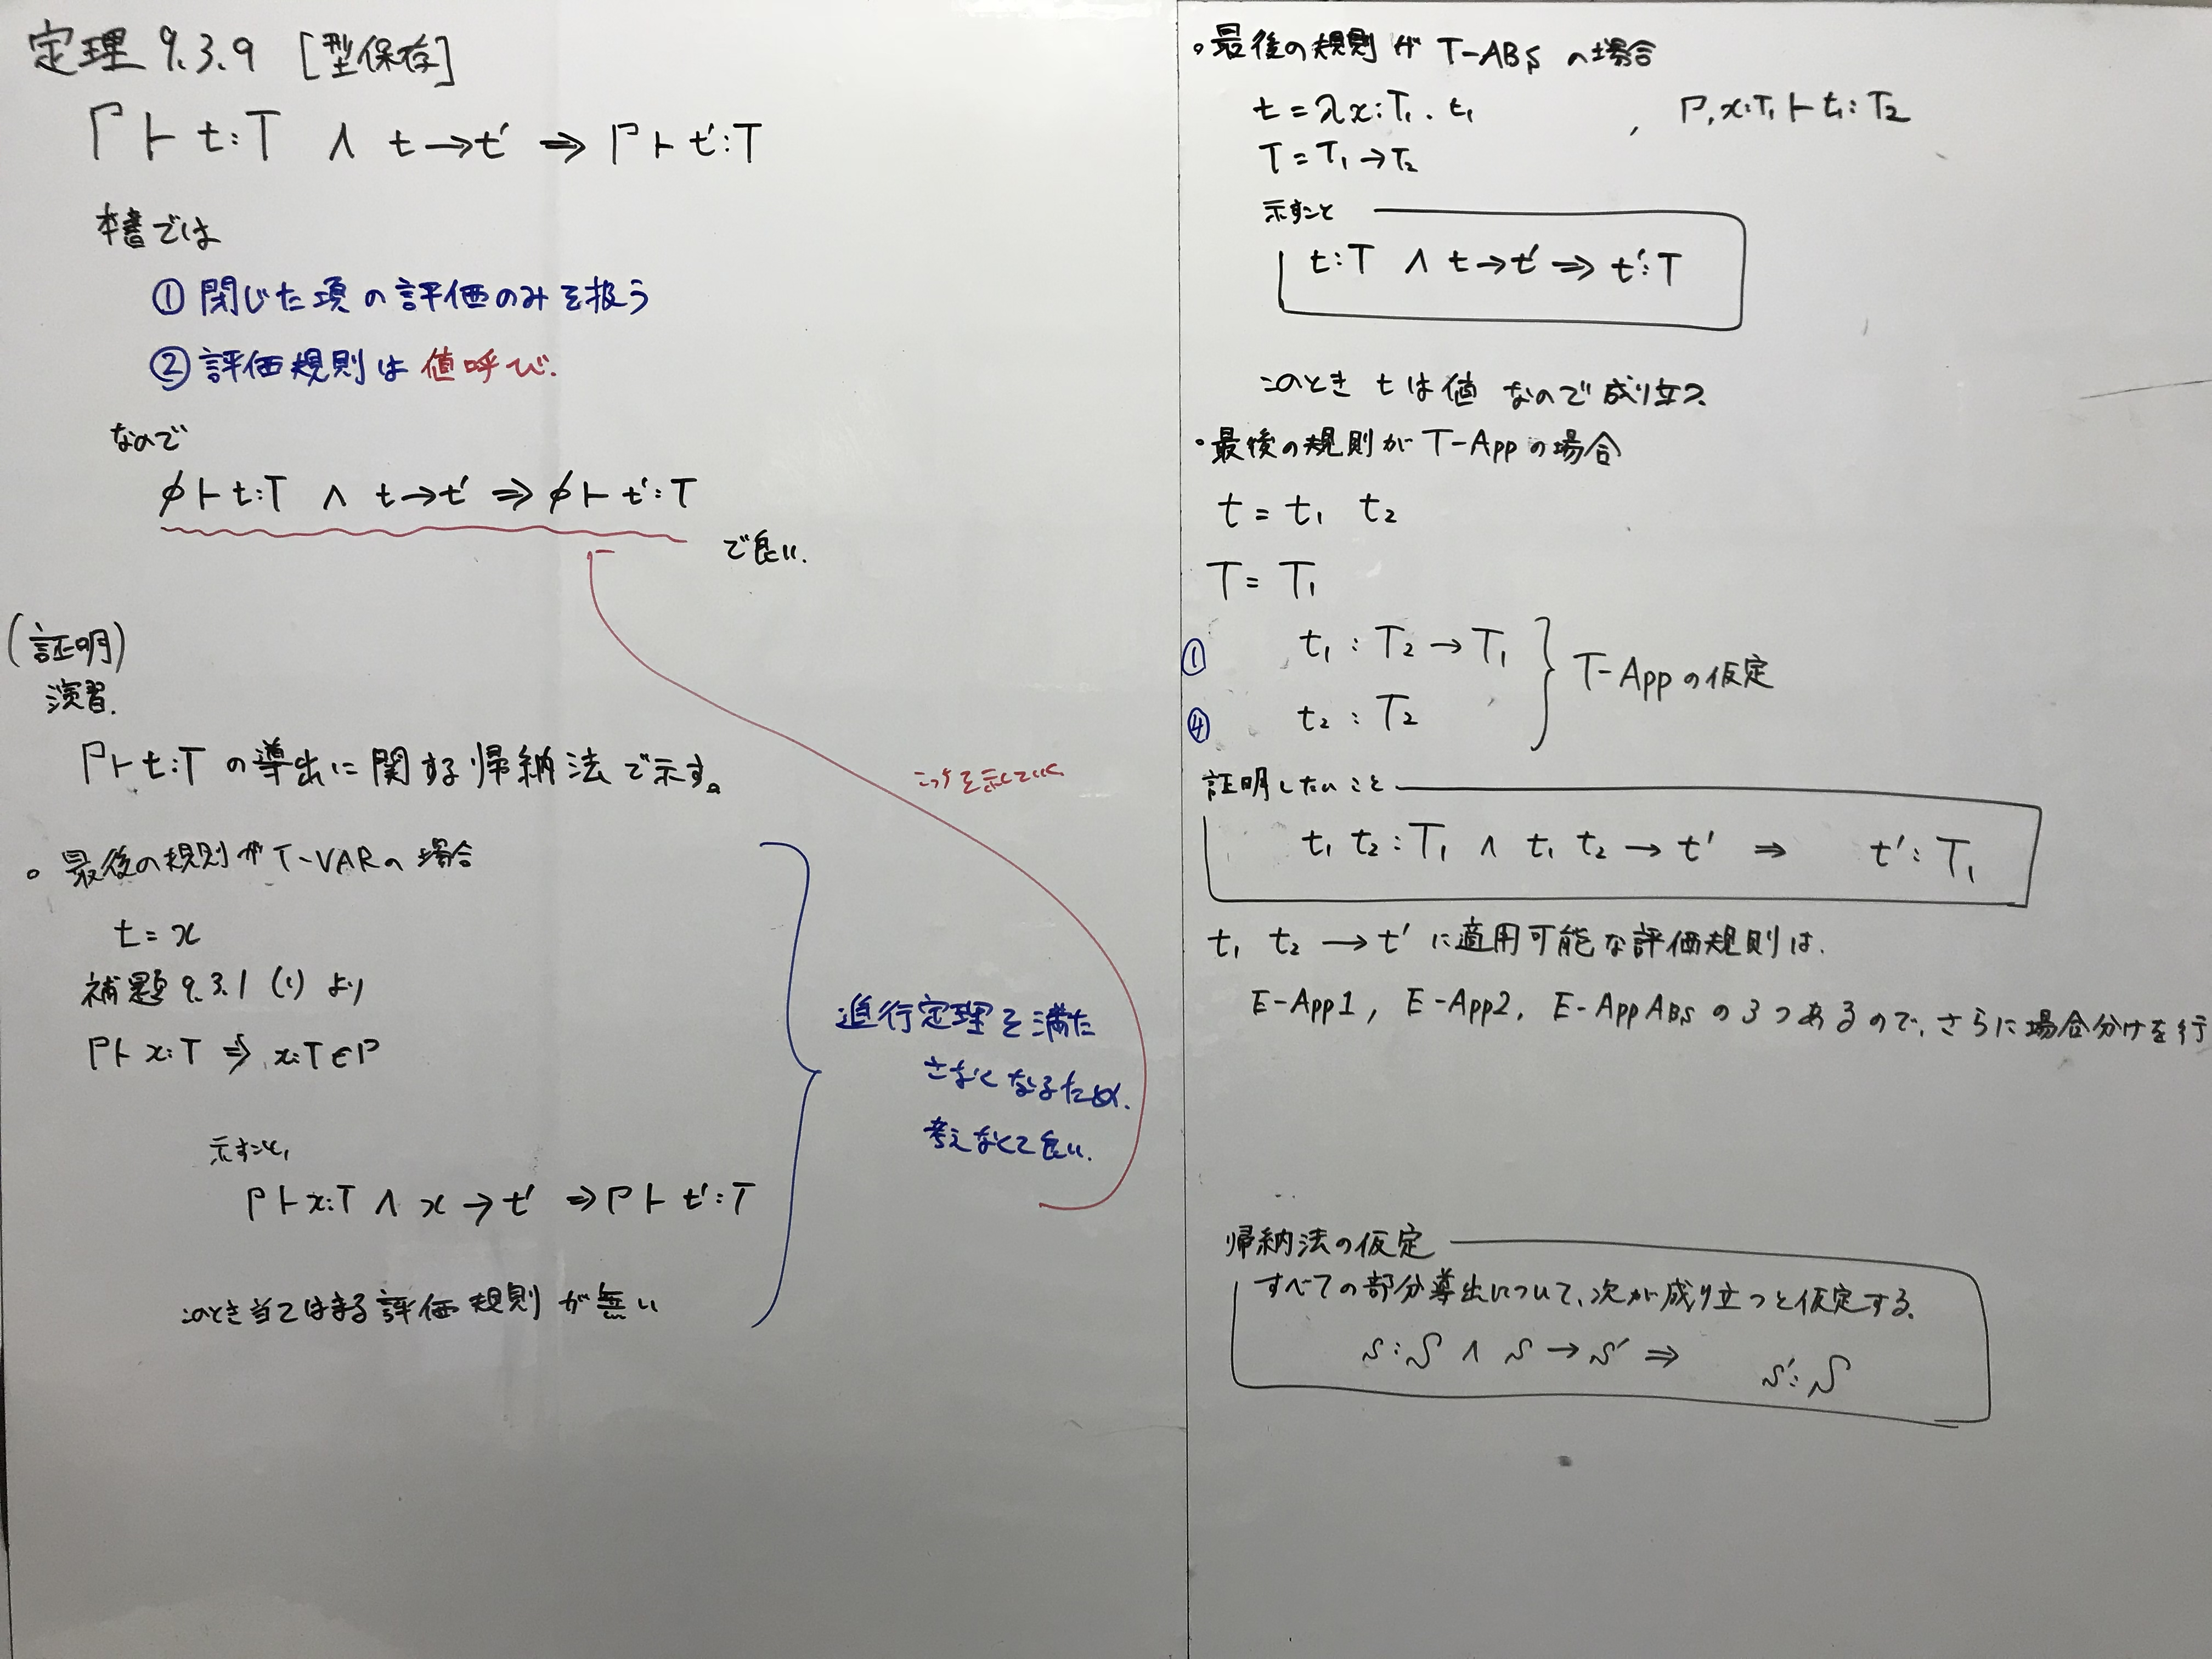 定理 9.3.9 [型保存]
Γ ⊢ t:T ∧ t→t' ⇒ Γ ⊢ t':T
本書では
① 閉じた項の評価のみを扱う
② 評価規則は 値呼び.
なので
φ ⊢ t:T ∧ t→t' ⇒ φ ⊢ t':T
で良い.
(証明)
演習.
Γ ⊢ t:T の導出に関する帰納法で示す。
こっちを示していく
。最後の規則が T-VARの場合
t = x
補題 9.3.1 (1) より
Γ ⊢ x:T ⇒ x:T ∈ Γ
進行定理を満た
さなくなるため.
考えなくて良い.
示すこと,
Γ ⊢ x:T ∧ x → t' ⇒ Γ ⊢ t':T
このとき当てはまる評価規則が無い
。最後の規則が T-ABS の場合
t = λx:T₁. t₁ , Γ, x:T₁ ⊢ t₁:T₂
T = T₁ → T₂
示すこと
t:T ∧ t→t' ⇒ t':T
このとき tは値 なので成り立つ.
・最後の規則が T-Appの場合
t = t₁ t₂
T = T₁
① t₁ : T₂ → T₁
④ t₂ : T₂
T-Appの仮定
証明したいこと
t₁ t₂ : T₁ ∧ t₁ t₂ → t' ⇒ t' : T₁
t₁ t₂ → t' に適用可能な評価規則は.
E-App1, E-App2, E-AppABS の3つあるので,さらに場合分けを行
帰納法の仮定
すべての部分導出について、次が成り立つと仮定する.
s:S ∧ s → s' ⇒ s':S